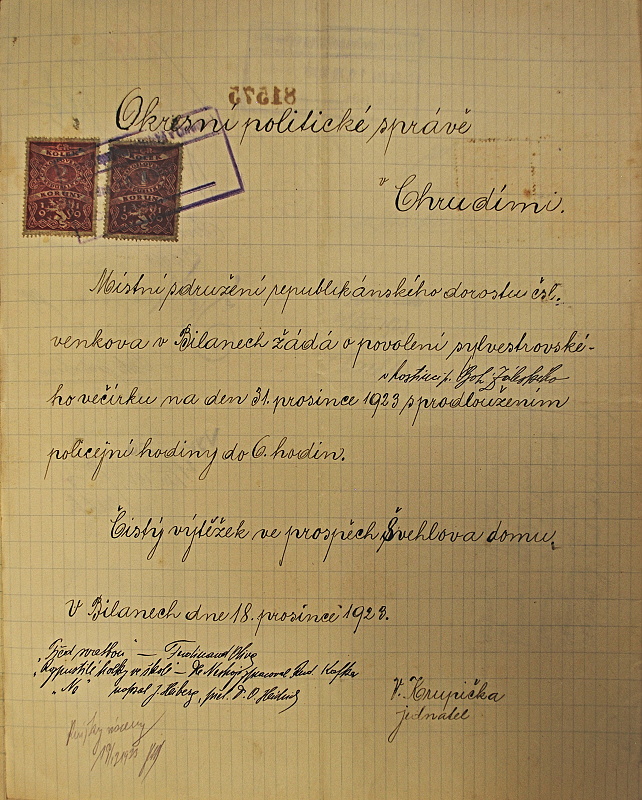 81575
Okresní politické správě
v
Chrudími.
KOLEK
KORUNY
KOLEK
KORUNA
Místní sdružení republikánského dorostu čsl.
venkova v Bilanech žádá o povolení sylvestrovské-
v hostinci p.
ho večírku na den 31. prosince 1923 s prodloužením
policejní hodiny do 6. hodin.
Čistý výtěžek ve prospěch Švehlova domu.
V Bilanech dne 18. prosince 1923.
"Před svatbou" — Ferdinand
"Rozpustilé holky ve škole" — Kafka
"No" napsal J.
V. Krupička
jednatel